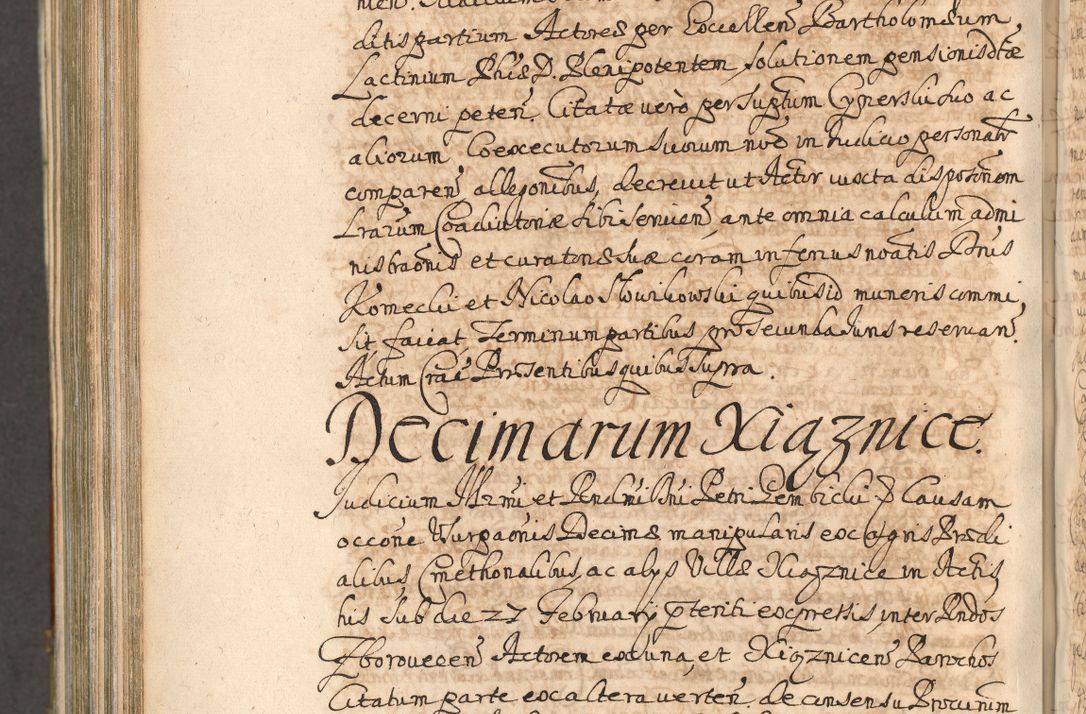 ditis partium Actores per Excellen Bartholomæum
Lactinium Phiæ D. Plenipotentem, solutionem pensionis dtæ
decerni peten. Citatæ verò per suptum Cynerski suo ac
aliorum Coexecutorum suorum noẽ in Iudicio personalr
comparen allegonibus, decrevit ut Actor iuxta disposonem
Lrarum Coadiutoriæ sibi servien, ante omnia calculum admi
nistraonis et curatonis suæ coram inferius noatis Dnis
Komecki et Nicolao Słowikowski quibus id muneris commi,
sit faciat. Terminum partibus pro secunda Iuris reservan.
Actum Crae Præsentibus quibus supra.
Decimarum Xiąznice.
Iudicium Illrmi et Rndmi Dni Petri Gembicki P Causam
occone Turbaonis Decimæ manipularis ex agris Prædi
alibus Cmethonalibus, ac alys Villæ Xiąznice in Actis
his sub die 27 February pteriti expressis, inter Rndos
Zborovecen Actorem ex una, et Xiąznicen Parochos
Citatum parte ex altera verten, de consensu Procurum